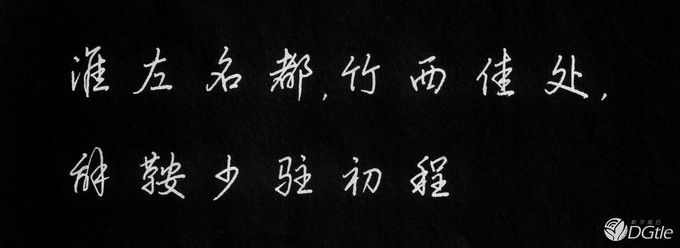 淮左名都,竹西佳处,
解鞍少驻初程
数字尾巴
DGtle